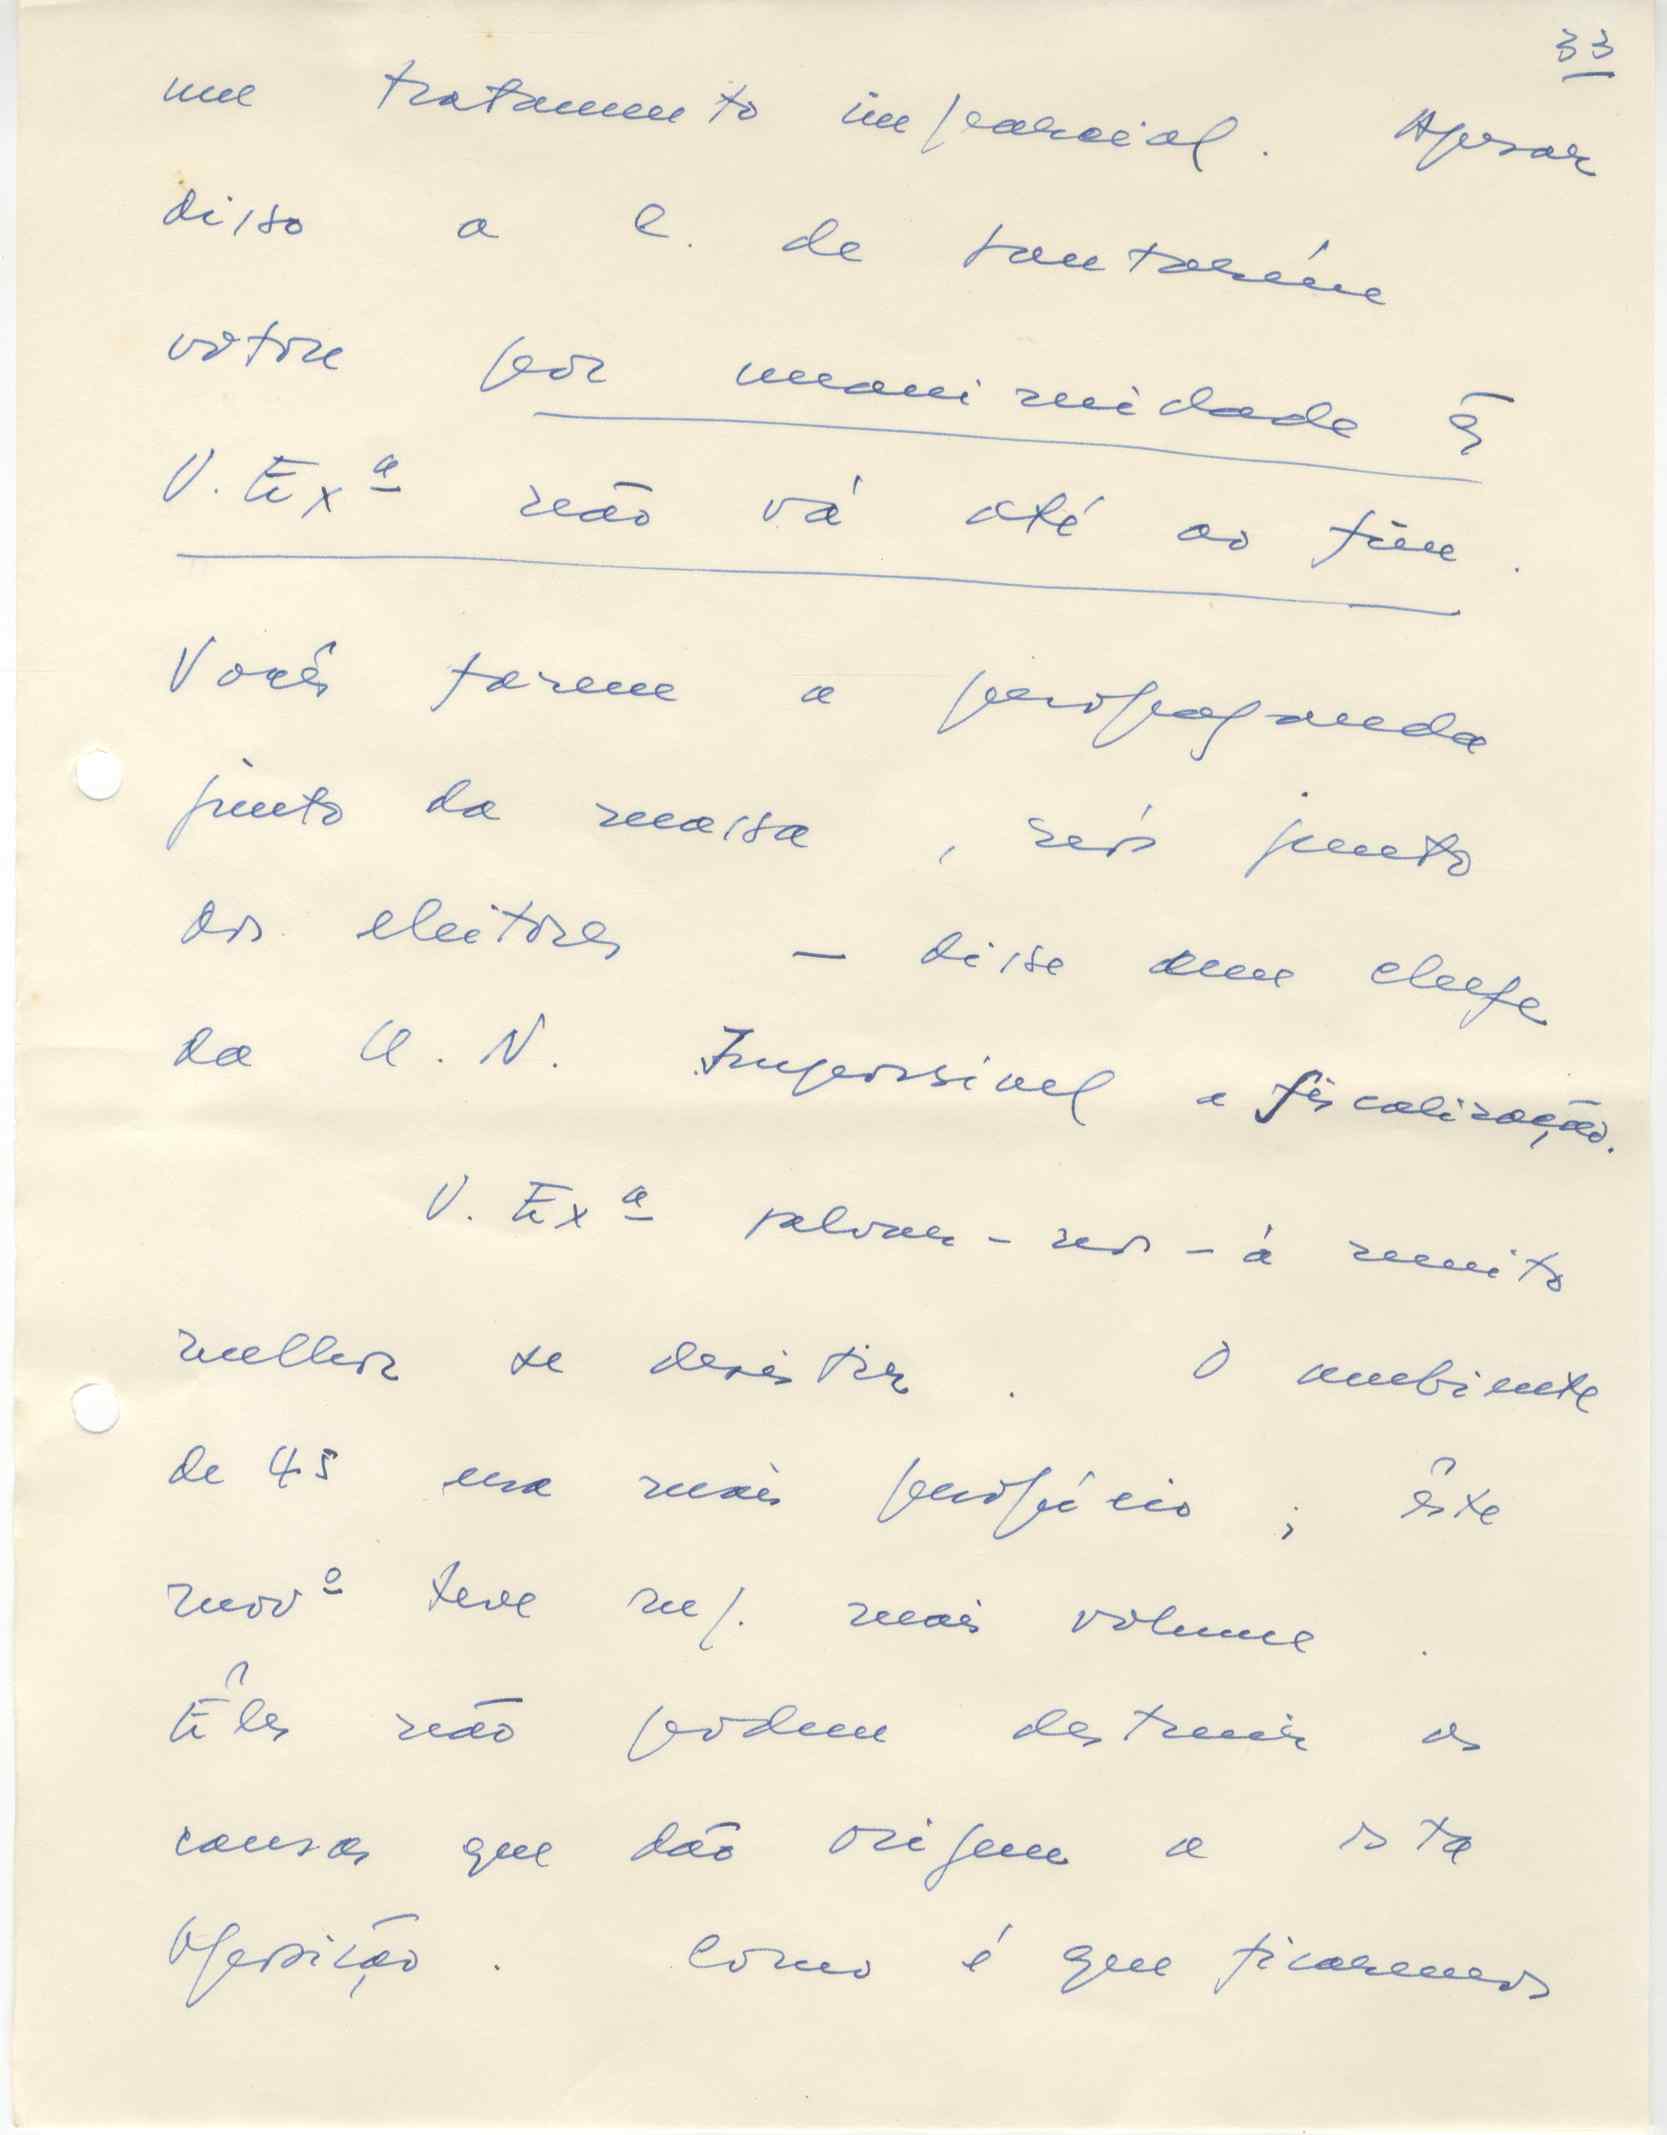 33
um tratamento imparcial. Apesar
disso a C. de Santarém
votou por unanimidade q̃
V. Exª não vá até ao fim.
Vocês fazem a propaganda
junto da massa, nós junto
dos eleitores — disse um chefe
da U. N. Impossivel a fiscalização.
V. Exª salvar-nos-á muito
melhor se desistir. O ambiente
de 45 era mais propício; êste
movº teve m/. mais volume.
Êles não podem destruir as
causas que dão origem a esta
Oposição. Como é que ficaremos